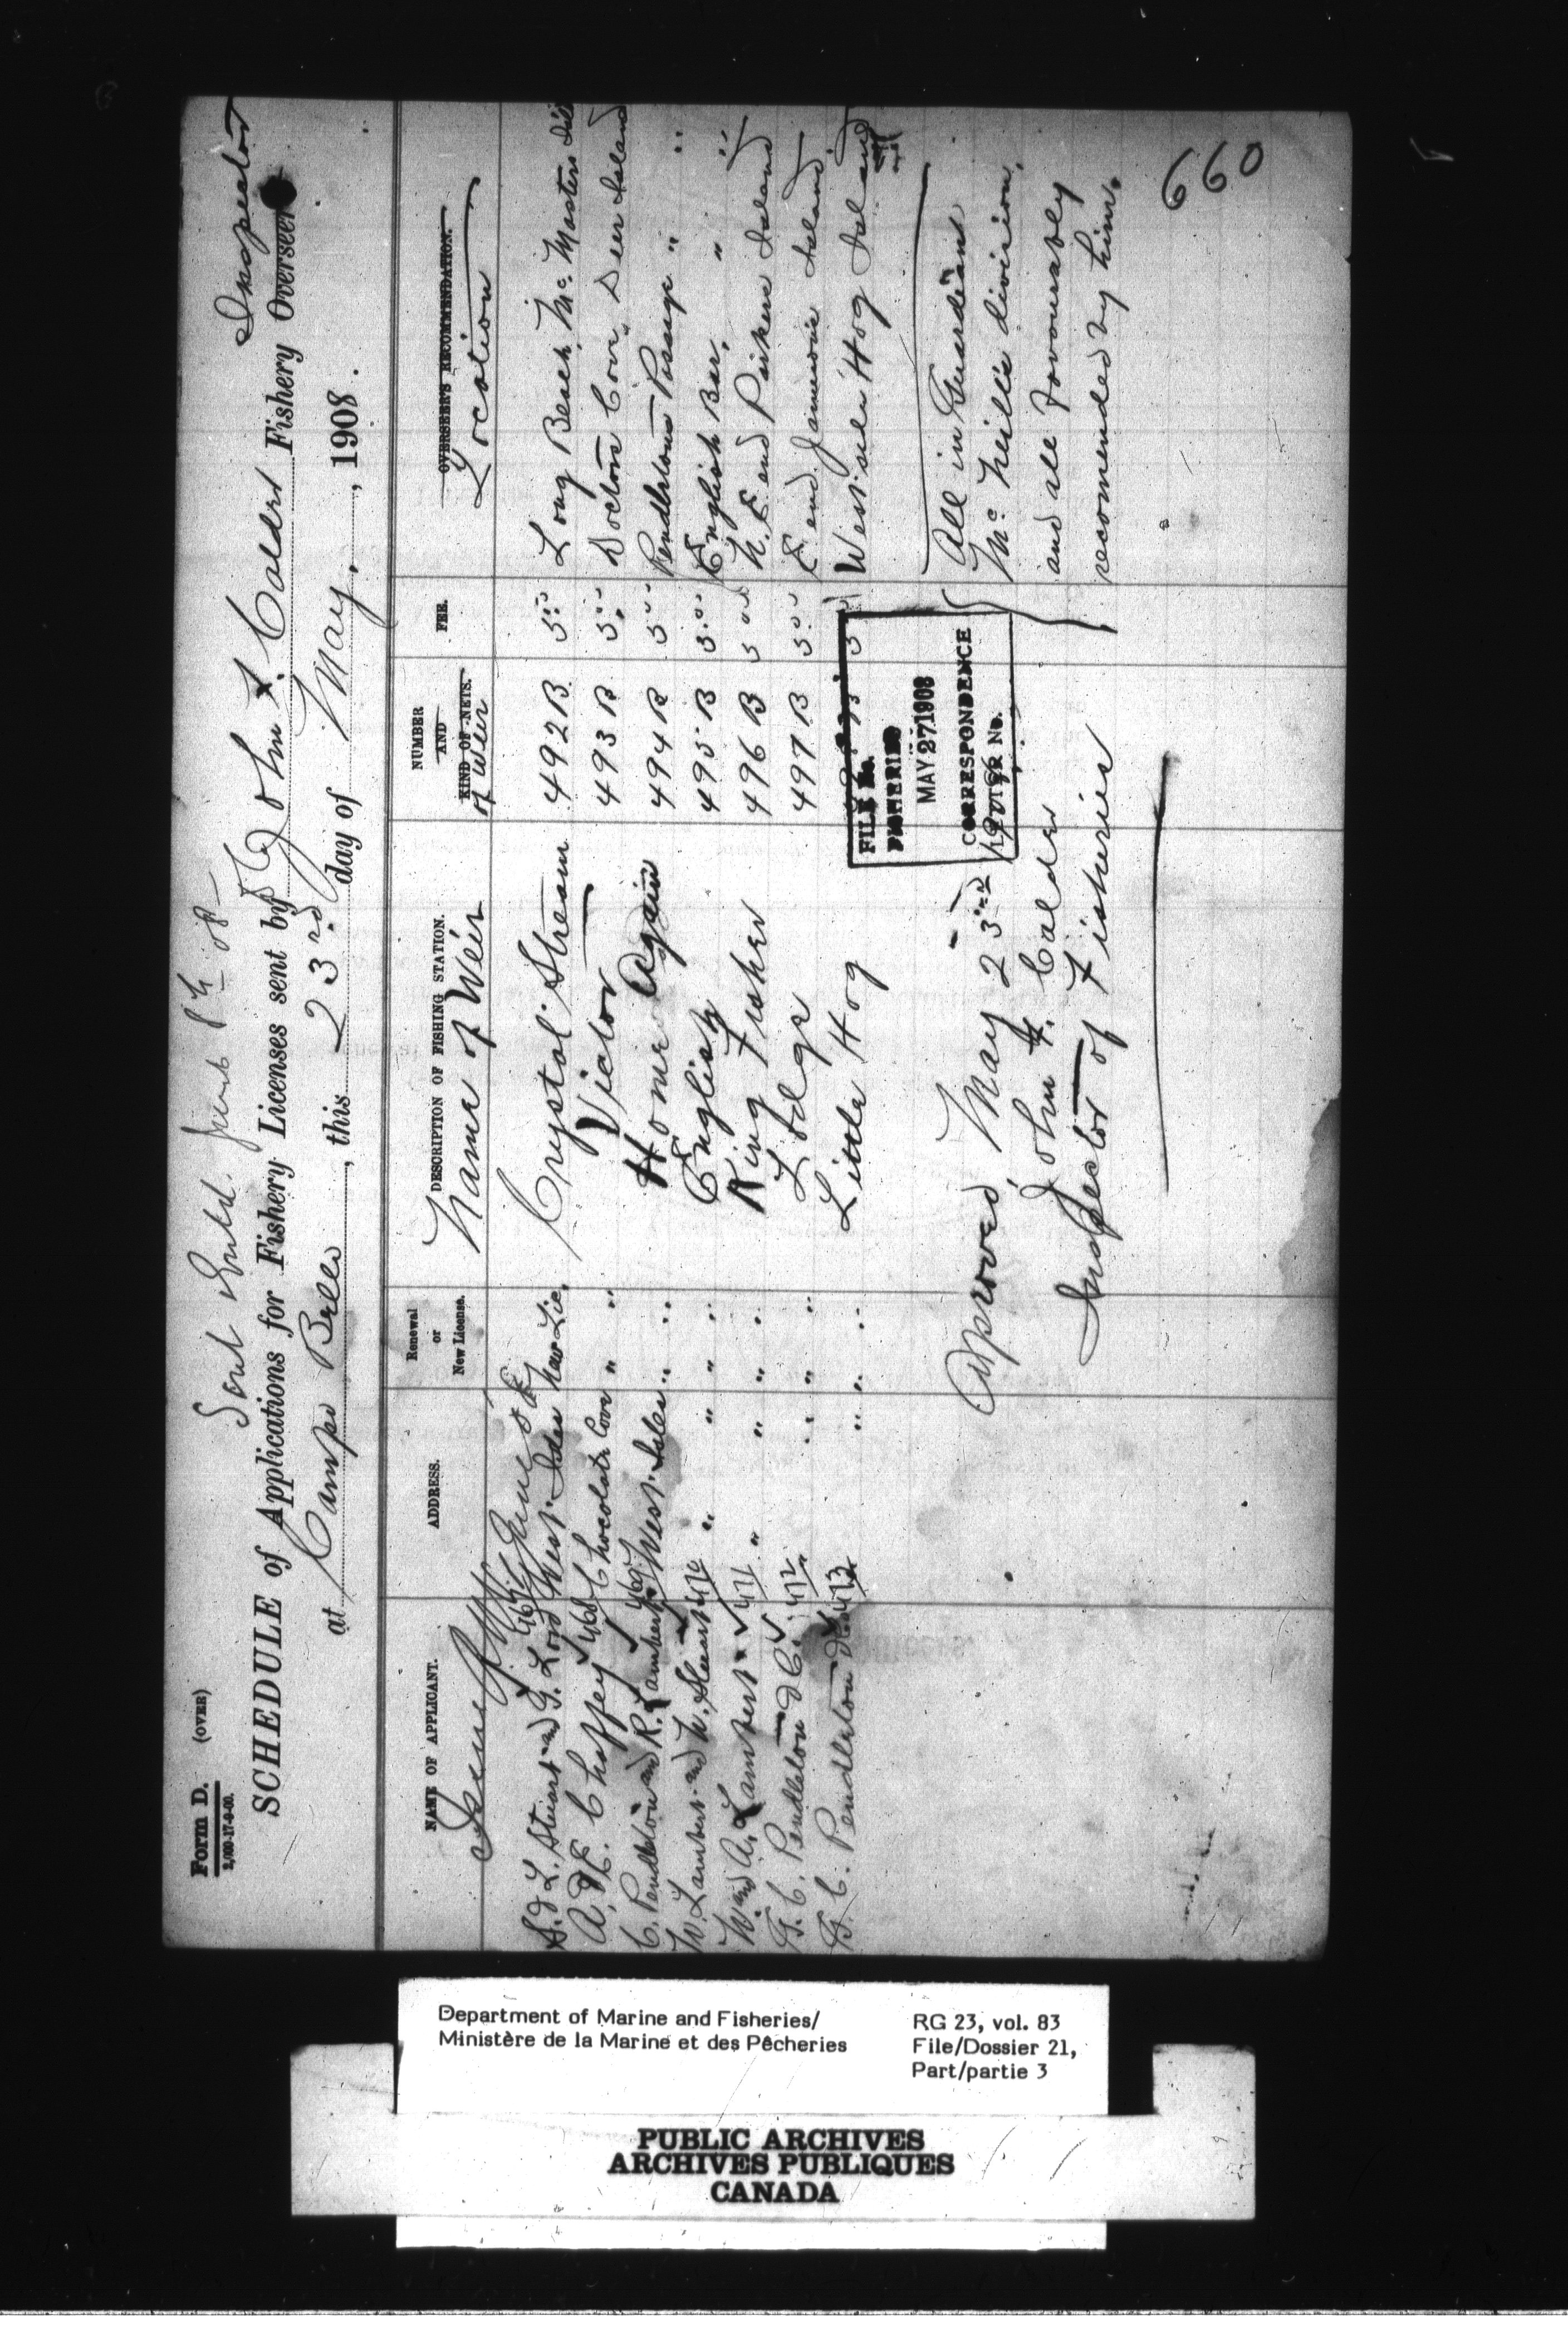 Form D. (OVER)
2,000-17-9-00.
Sent Entd. June 8th 08
SCHEDULE of Applications for Fishery Licenses sent by John F. Calder Fishery Overseer Inspector
at Campo Bello, this 23rd day of May, 1908.
NAME OF APPLICANT. ADDRESS. Renewal or New License. DESCRIPTION OF FISHING STATION. NUMBER AND KIND OF NETS. FEE. OVERSEER'S RECOMMENDATION.
Name of Weir of Weir Location
June 8
S. & L. Stuart and G. Lord 467 West Isles New Lic. Crystal Stream 492 B 5.00 Long Beach, McMasters Isld
A. & E. Chaffey 468 Chocolate Cove " " Victor 493 B 5.00 Doctors Cove, Deer Island
C. Pendleton and R. Lambert 469 West Isles " " Home Again 494 B 5.00 Pendletons Passage " "
W. Lambert and N. Stuart 470 " " " " English 495 B 5.00 English Bar, " "
W. and A. Lambert 471 " " " " King Fisher 496 B 5.00 N. E. end Parkers Island
G. C. Pendleton & C. 472 " " " Lodge 497 B 5.00 E end Jamiesons Island
G. C. Pendleton & C. 473 " " " Little Hog B 5 West side Hog Island
FILE No.
FISHERIES
MAY 27 1908
CORRESPONDENCE
All in Guardian
McNeill's division,
and all Favourably
recommended by him.
Approved, May 23rd 1908
John F. Calder
Inspector of Fisheries
660
Department of Marine and Fisheries/
Ministère de la Marine et des Pêcheries
RG 23, vol. 83
File/Dossier 21,
Part/partie 3
PUBLIC ARCHIVES
ARCHIVES PUBLIQUES
CANADA